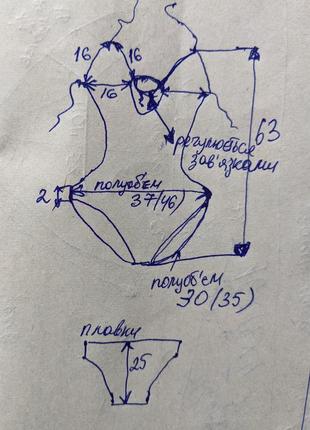 16
16
16
63
регулюється
зав'язками
2
полуоб'єм
37(46)
полуоб'єм
30(35)
плавки
25